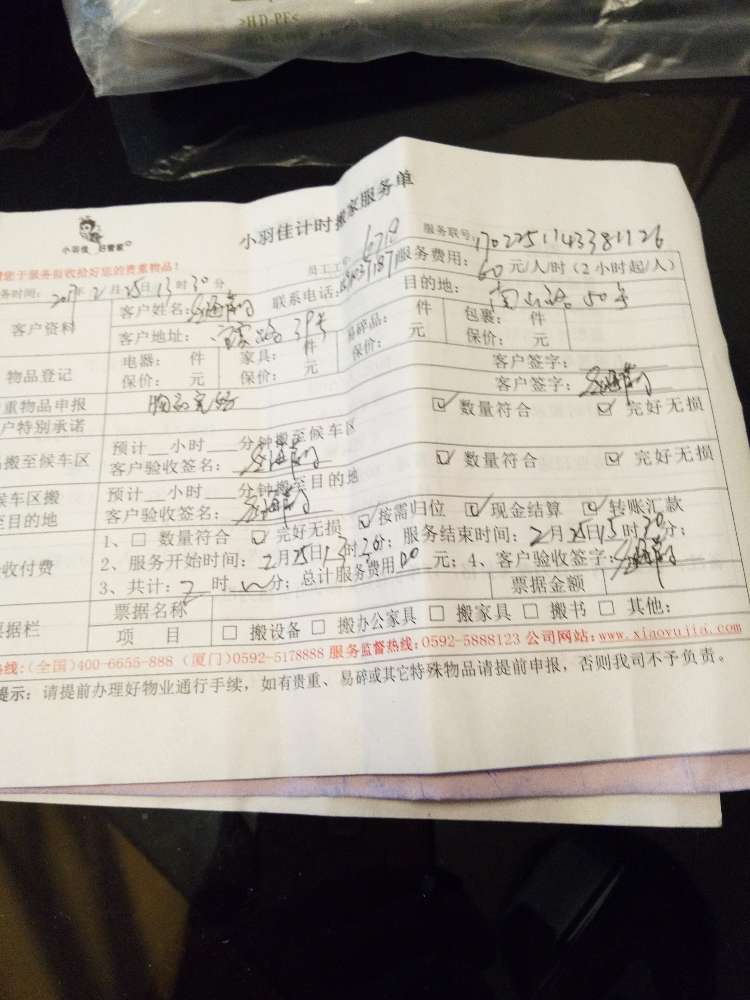 >HD-PE<
小羽佳计时搬家服务单
小羽佳 好管家
服务联号: 1702251143381126
于服务前收拾好您的贵重物品!
员工工号: 6710
服务费用: 60 元/人/时(2小时起/人)
务时间: 2017年2月25日13时30分
联系电话:
目的地: 南山路50号
客户资料
客户姓名:
客户地址: 39号
物品登记
电器: 件 家具: 件 易碎品: 件 包裹: 件
保价: 元 保价: 元 保价: 元 保价: 元
客户签字:
重物品申报 物品完好
客户签字:
户特别承诺
数量符合 完好无损
搬至候车区
预计 小时 分钟搬至候车区
客户验收签名:
数量符合 完好无损
候车区搬
至目的地
预计 小时 分钟搬至目的地
客户验收签名:
收付费
1、□ 数量符合 完好无损 按需归位 现金结算 转账汇款
2、服务开始时间: 2月25日13时30分; 服务结束时间: 2月25日15时30分;
3、共计: 2时 分; 总计服务费用 元; 4、客户验收签字:
票据栏
票据名称 票据金额
项 目 □ 搬设备 □ 搬办公家具 □ 搬家具 □ 搬书 □ 其他:
热线:(全国)400-6655-888 (厦门)0592-5178888 服务监督热线:0592-5888123 公司网站:www.xiaoyujia.com
提示: 请提前办理好物业通行手续, 如有贵重、易碎或其它特殊物品请提前申报, 否则我司不予负责。